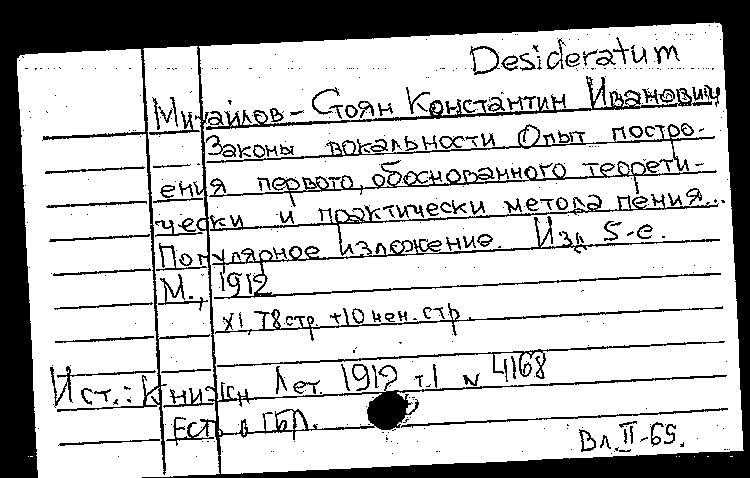 Desideratum
Михайлов-Стоян Константин Иванович
Законы вокальности Опыт постро-
ения первого, обоснованного теорети-
чески и практически метода пения...
Популярное изложение. Изд. 5-е.
М., 1912
XI, 78 стр. +10 нен. стр.
Ист.: Книжн. Лет. 1912 т.1 N 4168
Есть в ГБЛ.
Вл. II-65.